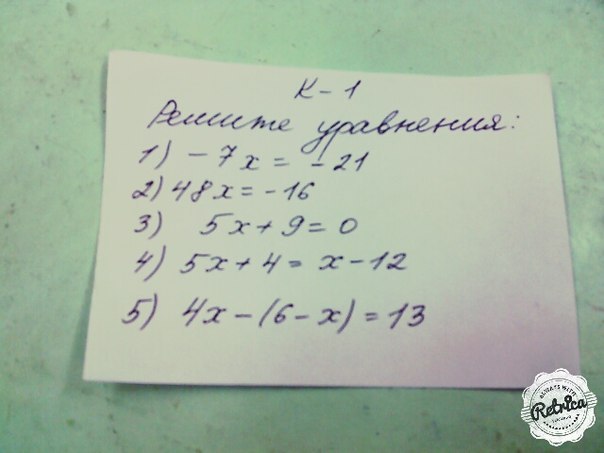 К-1
Решите уравнения:
1) -7x = -21
2) 48x = -16
3) 5x+9=0
4) 5x+4=x-12
5) 4x-(6-x)=13
ALWAYS WITH
Retrica